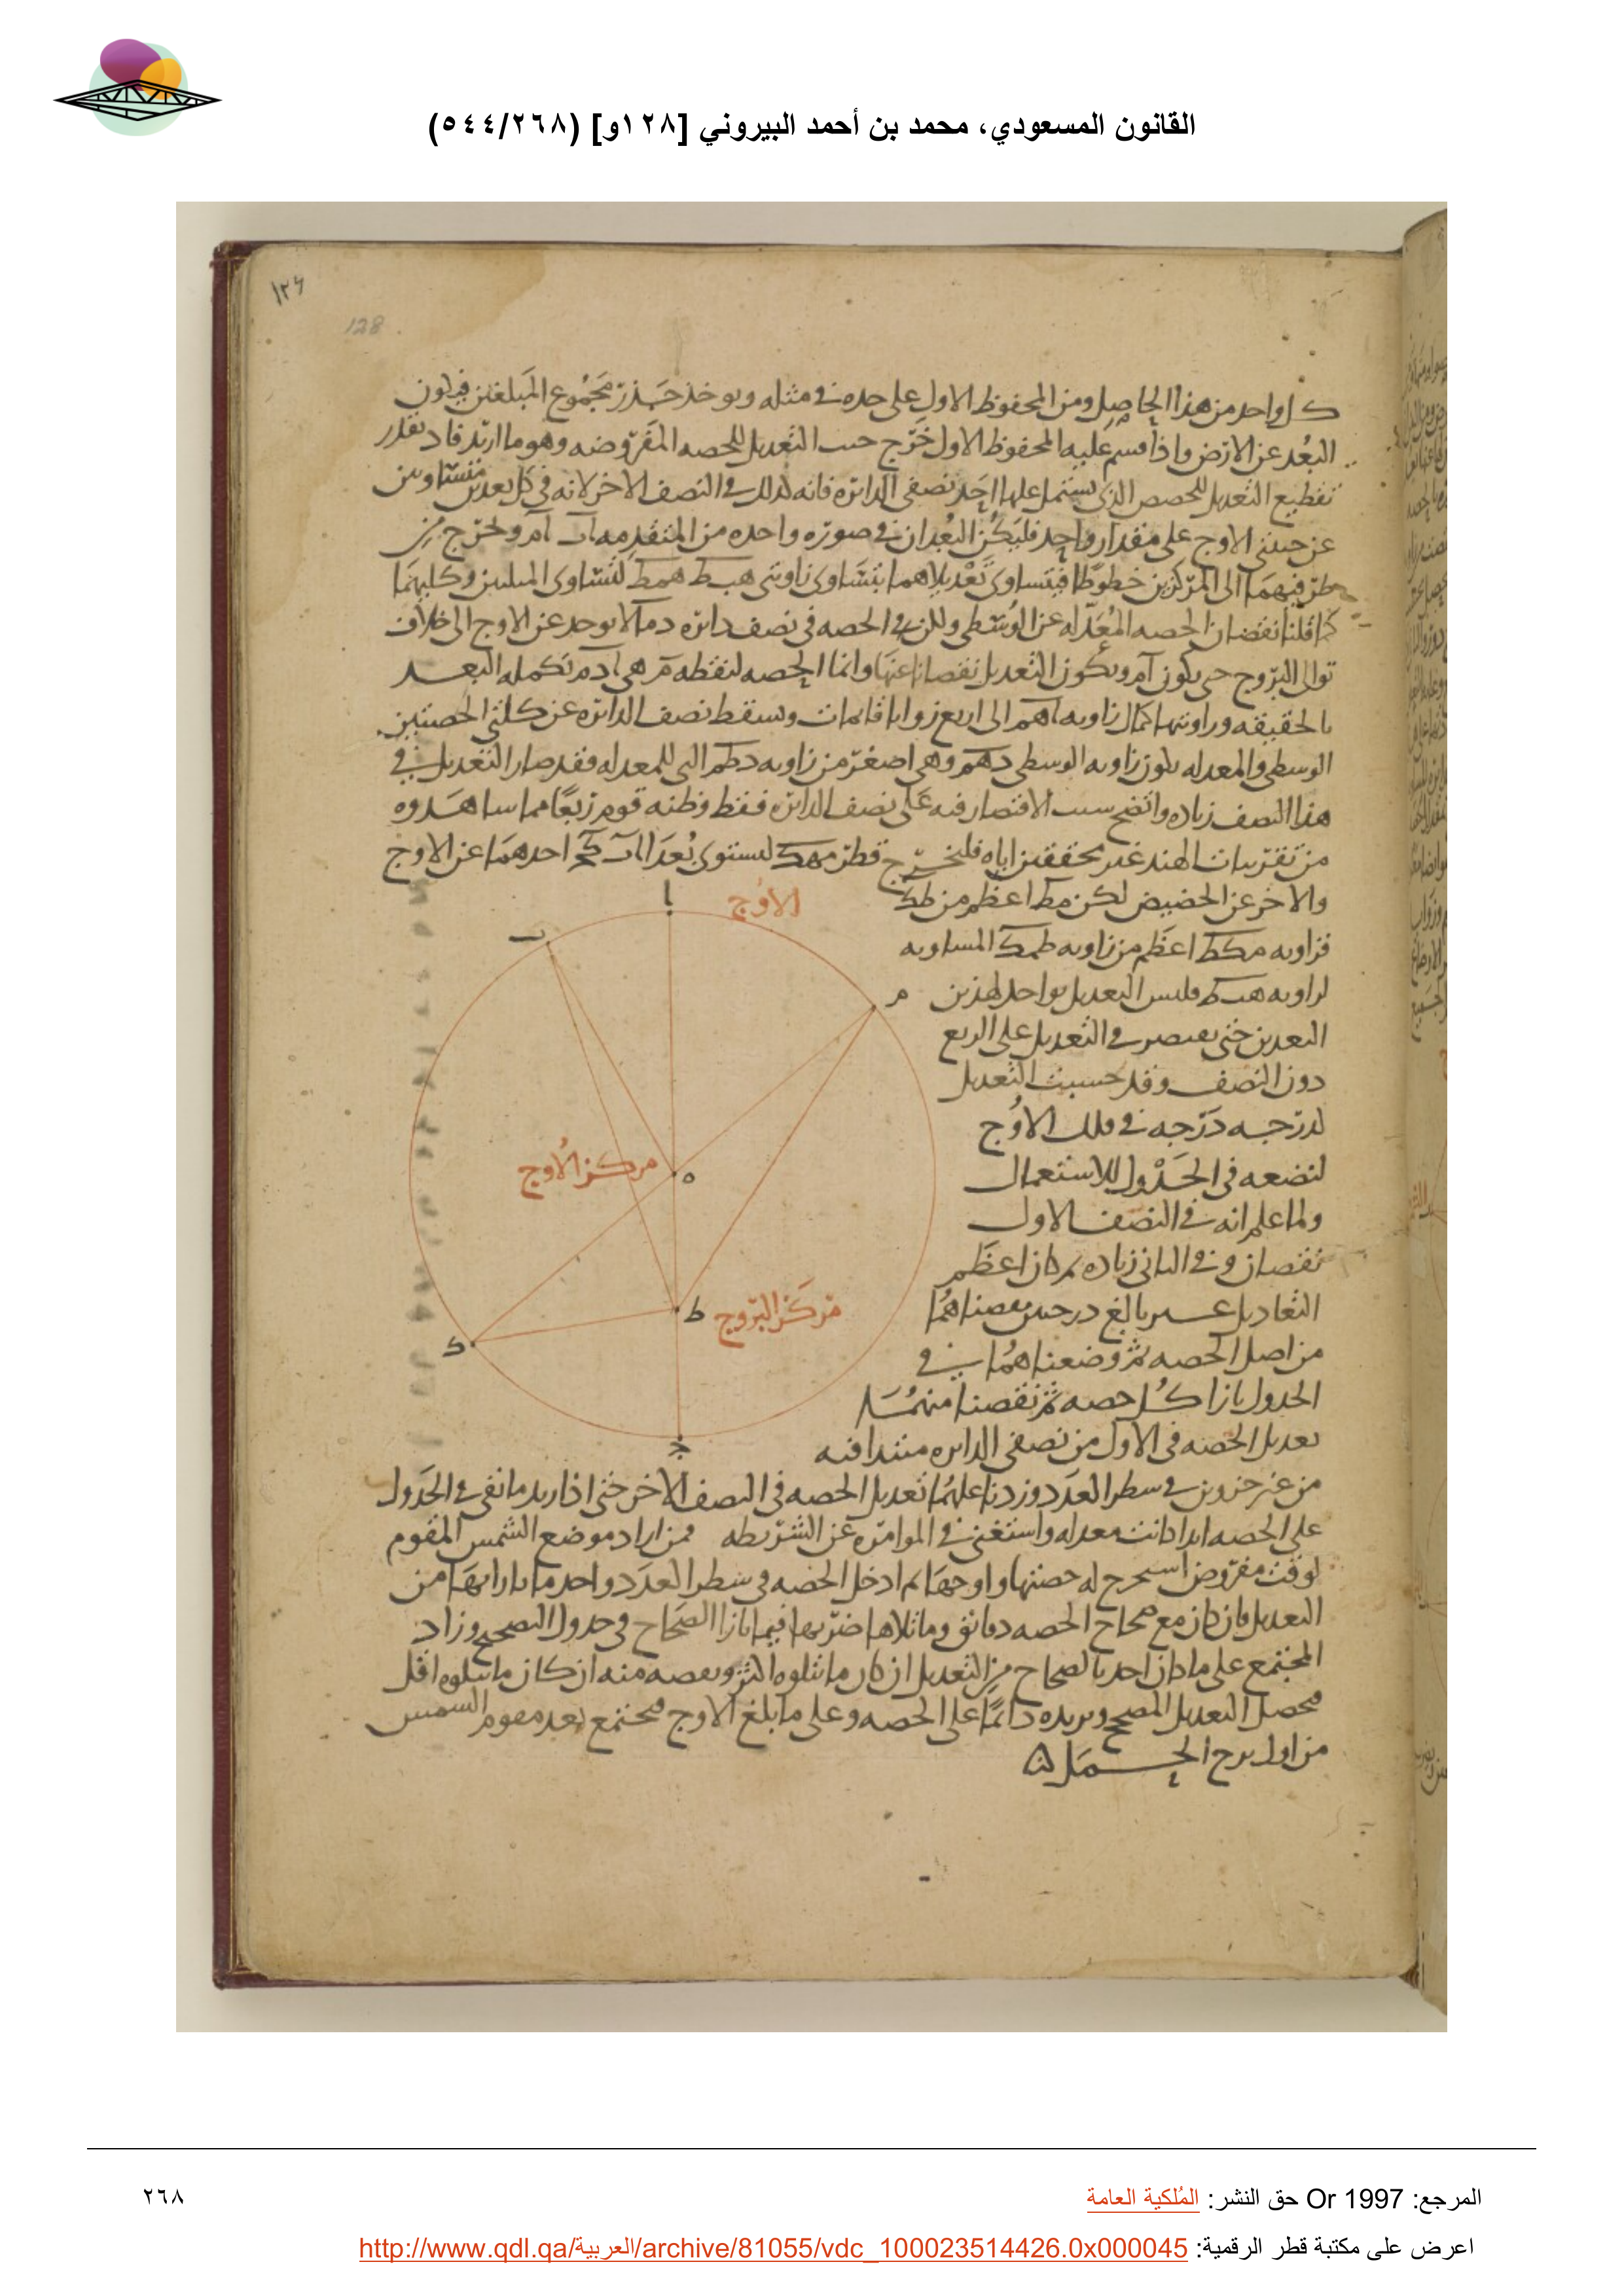 القانون المسعودي، محمد بن أحمد البيروني [١٢٨و] (٥٤٤/٢٦٨)
128
كل واحد من هذا الحاصل ومن المحفوظ الاول على حده في مثله ويوخذ جذر مجموع المبلغين فيكون
البعد عن الارض واذا قسم عليه المحفوظ الاول خرج جيب التعديل للحصه المفروضه وهو ما اردنا
تقطيع التعديل للحصص الذي يشتمل عليها احد نصفي الدائره فانه كذلك في النصف الاخر لانه في كل بعدين متساويين
عن جنبتي الاوج على مقدار واحد فليكن البعدان في صوره واحده من المتقدمه اب ام ونخرج من
طرفيهما الى المركزين خطوطا فيتساوى تعديلاهما بتساوي زاويتي هبط همط لتساوي المثلثين وكليهما
كما قلنا نقصان الحصه المعدله عن الوسطى ولكن الحصه في نصف دائره دما لا يوخد عن الاوج الى خلاف
توالى البروج حتى يكون ام ويكون التعديل نقصانا عنها وانما الحصه لنقطه م هي ادم تكمله البعد
بالحقيقه وزاويتها كمال زاويه اهم الى اربع زوايا قائمات ويسقط نصف الدائره عن كلتي الحصتين
الوسطى والمعدله يكون زاويه الوسطى دهم وهي اصغر من زاويه دطم التي للمعدله فقد صار التعديل في
هذا النصف زياده واتضح سبب الاقتصار فيه على نصف الدائره فقط وظنه قوم ربعا مما شاهدوه
من تقريبات الهند غير محققين اياه فليخرج قطر مهك ليستوي بعدا اب كح احدهما عن الاوج
والاخر عن الحضيض لكن مط اعظم من طك
فزاويه مكط اعظم من زاويه طمك المساويه
لزاويه هبط فليس التعديل بواحد لهذين
البعدين حتى يقتصر في التعديل على الربع
دون النصف وقد حسبت التعديل
لدرجه درجه في فلك الاوج
لنضعه في الجدول للاستعمال
ولما علم انه في النصف الاول
نقصان وفي الثاني زياده وكان اعظم
التعاديل غير بالغ درجتين نقصناهما
من اصل الحصه ثم وضعناهما في
الجدول بازا كل حصه ثم نقصنا منهما
تعديل الحصه في الاول من نصفي الدائره
علي الحصه ابدا كانت معدله واستغنى في الموامره عن الشريطه فمن اراد موضع الشمس المقوم
لوقت مفروض استخرج له حصتها واوجها ثم ادخل الحصه في سطر العدد واخد ما بازايها من
التعديل فان كان مع صحاح الحصه دقائق وما تلاها ضربها فيما بازا الصحاح في جدول التصحيح وزاد
المجتمع على ما كان اخد بالصحاح من التعديل ان كان ما يتلوه اكثر ونقصه منه ان كان ما يتلوه اقل
فحصل التعديل المصحح ويزيده دائما على الحصه وعلى ما بلغ الاوج فيجتمع بعد مقوم الشمس
من اول برج الحمل
الاوج
ا
ب
م
مركز الاوج
ه
ط
مركز البروج
ك
ج
المرجع: Or 1997 حق النشر: المُلكية العامة
٢٦٨
اعرض على مكتبة قطر الرقمية: http://www.qdl.qa/العربية/archive/81055/vdc_100023514426.0x000045